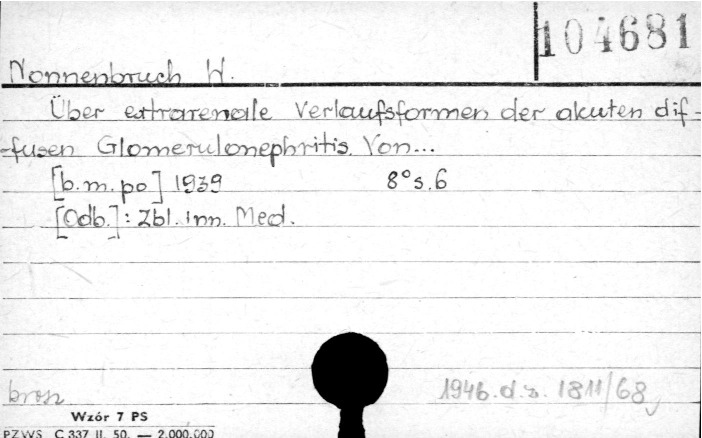 104681
Nonnenbruch W.
Über extrarenale Verlaufsformen der akuten dif-
-fusen Glomerulonephritis. Von...
[b.m.po] 1939 8° s. 6
[Odb.]: Zbl. inn. Med.
brosz 1946. d. z. 1811/68
Wzór 7 PS
PZWS C 337 II. 50. — 2.000.000